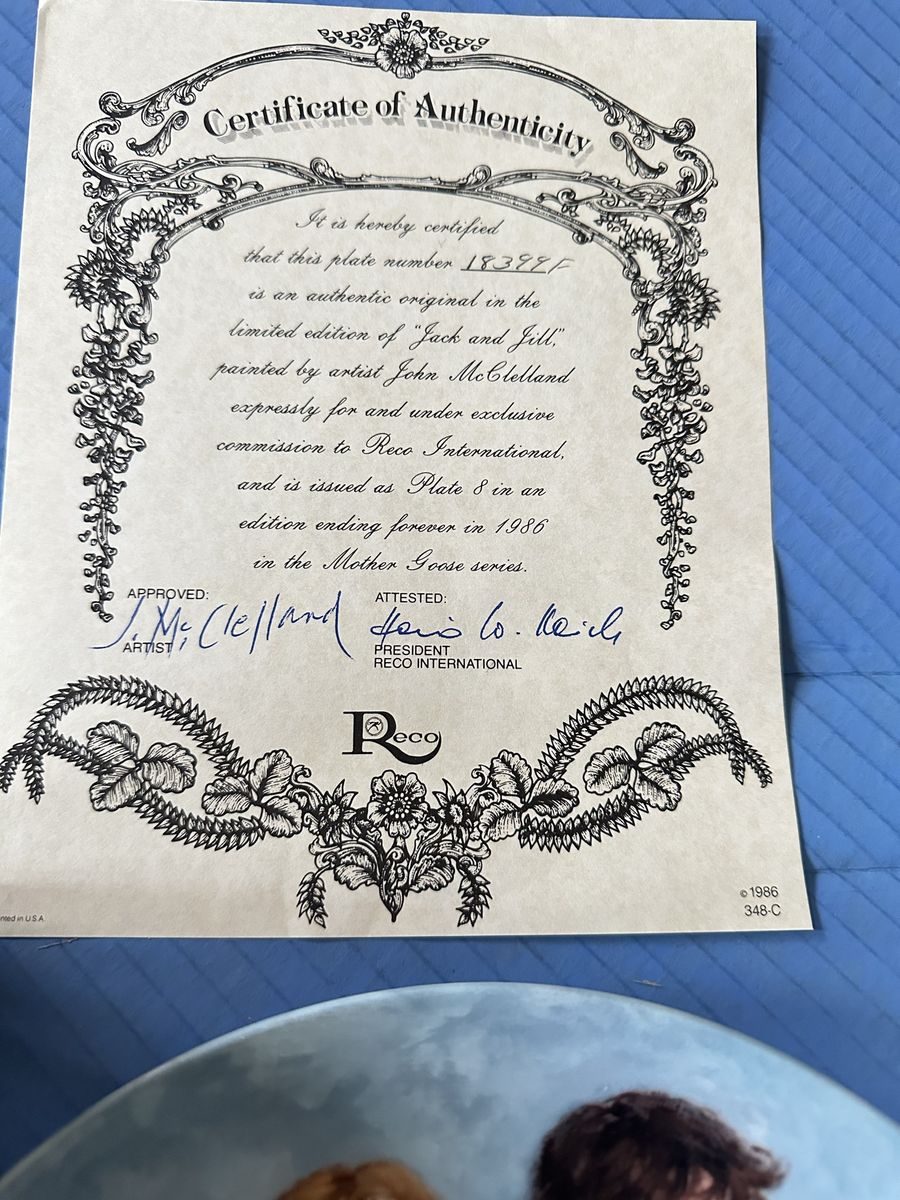 Certificate of Authenticity
It is hereby certified
that this plate number 18399F
is an authentic original in the
limited edition of "Jack and Jill,"
painted by artist John McClelland
expressly for and under exclusive
commission to Reco International,
and is issued as Plate 8 in an
edition ending forever in 1986
in the Mother Goose series.
APPROVED: ATTESTED:
J. McClelland
ARTIST PRESIDENT
RECO INTERNATIONAL
Reco
©1986
348-C
nted in U.S.A.